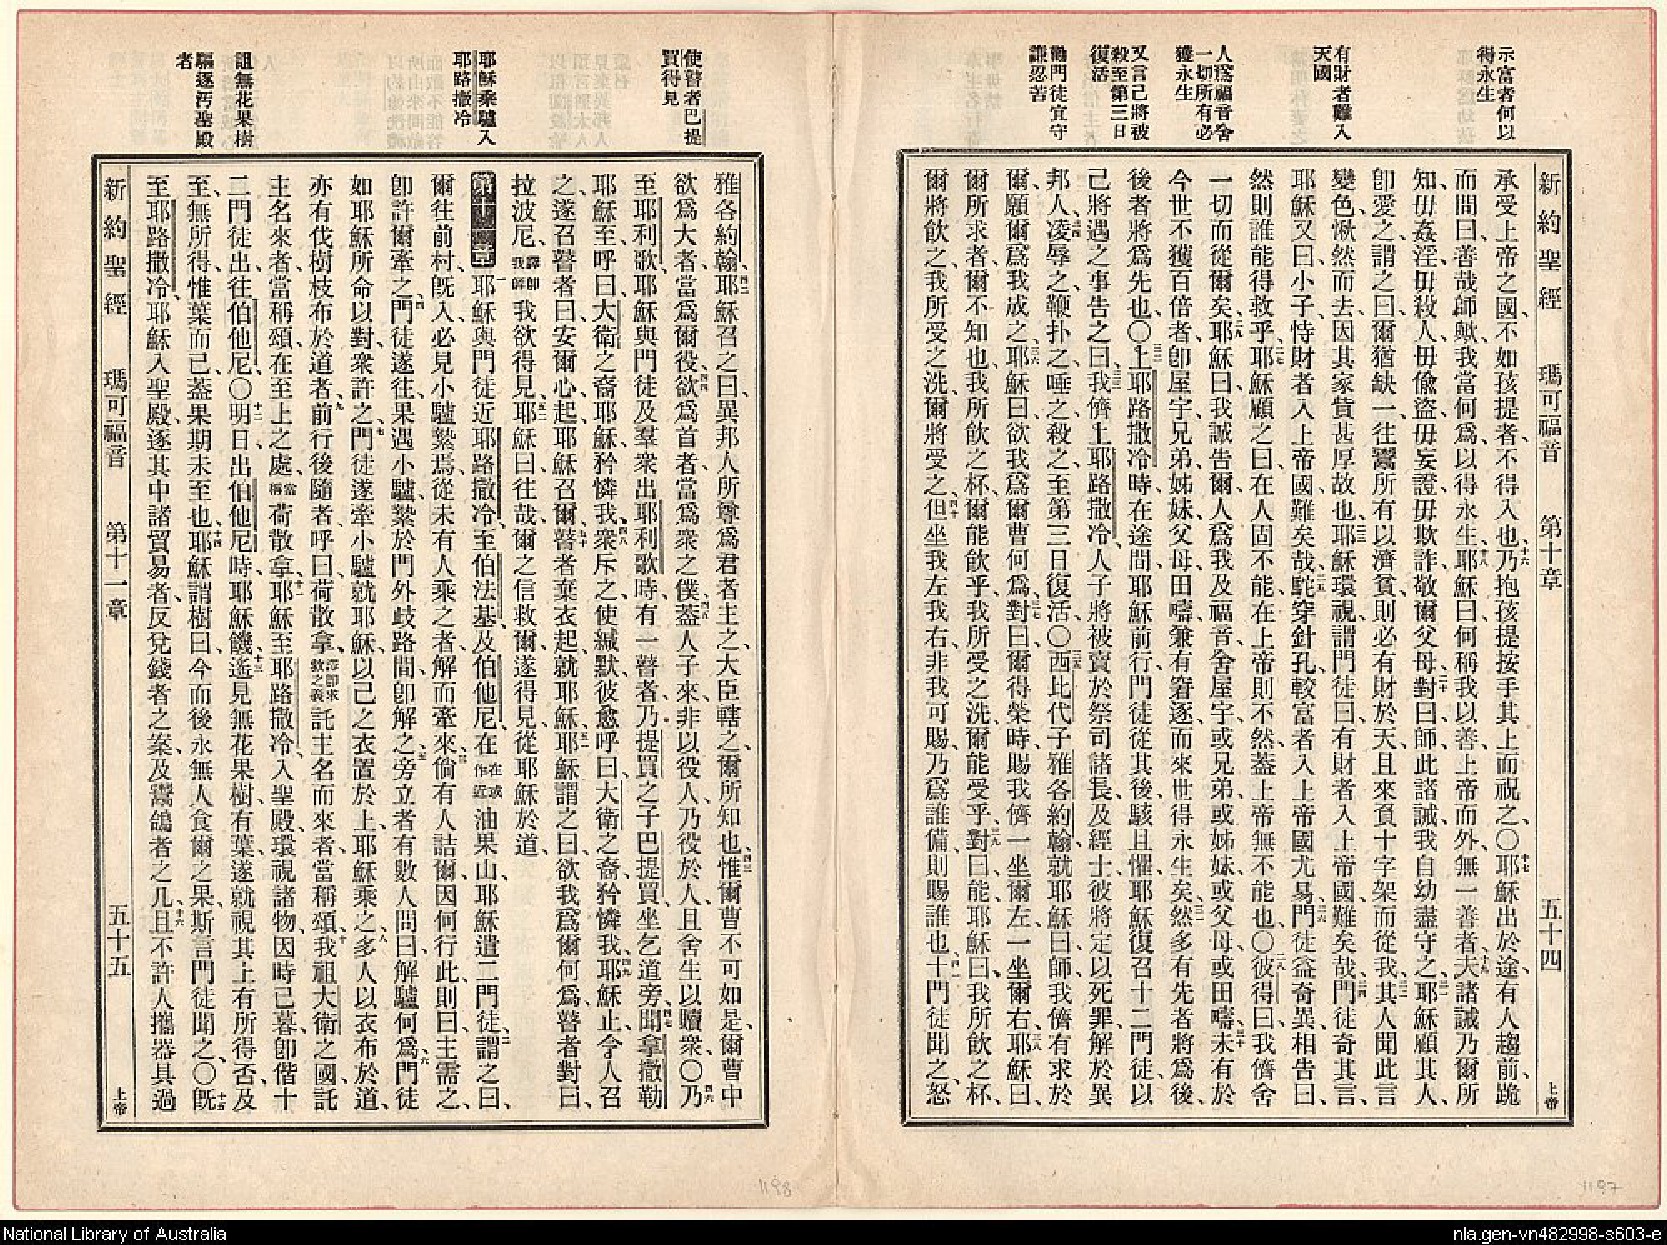 示富者何以
得永生
有財者難入
天國
人爲福音舍
一切所有必
獲永生
又言己將被
殺至第三日
復活
勸門徒宜守
謙忍苦
新約聖經 瑪可福音 第十章 五十四 上帝
承受上帝之國、不如孩提者、不得入也、十六乃抱孩提按手其上而祝之、〇十七耶穌出於途、有人趨前、跪
而問曰、善哉師歟、我當何爲以得永生、十八耶穌曰、何稱我以善、上帝而外、無一善者、十九夫諸誡乃爾所
知、毋姦淫、毋殺人、毋偸盜、毋妄證、毋欺詐、敬爾父母、二十對曰、師、此諸誡我自幼盡守之、二一耶穌顧其人、
卽愛之、謂之曰、爾猶缺一、往鬻所有以濟貧、則必有財於天、且來負十字架而從我、二二其人聞此言
變色、愀然而去、因其家貲甚厚故也、二三耶穌環視、謂門徒曰、有財者入上帝國、難矣哉、二四門徒奇其言、
耶穌又曰、小子、恃財者入上帝國、難矣哉、二五駝穿針孔、較富者入上帝國尤易、二六門徒益奇異、相告曰、
然則誰能得救乎、二七耶穌顧之曰、在人固不能、在上帝則不然、蓋上帝無不能也、〇二八彼得曰、我儕舍
一切而從爾矣、二九耶穌曰、我誠告爾、人爲我及福音、舍屋宇、或兄弟、或姊妹、或父母、或田疇、三十未有於
今世不獲百倍者、卽屋宇、兄弟、姊妹、父母、田疇、兼有窘逐、而來世得永生矣、三一然多有先者將爲後、
後者將爲先也、〇三二上耶路撒冷時、在途間、耶穌前行、門徒從其後、駭且懼、耶穌復召十二門徒、以
己將遇之事告之曰、三三我儕上耶路撒冷、人子將被賣於祭司諸長、及經士、彼將定以死罪、解於異
邦人、三四凌辱之、鞭扑之、唾之、殺之、至第三日復活、〇三五西比代子雅各約翰就耶穌曰、師、我儕有求於
爾、願爾爲我成之、三六耶穌曰、欲我爲爾曹何爲、三七對曰、爾得榮時、賜我儕一坐爾左、一坐爾右、三八耶穌曰、
爾所求者、爾不知也、我所飮之杯、爾能飮乎、我所受之洗、爾能受乎、三九對曰、能、耶穌曰、我所飮之杯、
爾將飮之、我所受之洗、爾將受之、四十但坐我左我右、非我可賜、乃爲誰備、則賜誰也、四一十門徒聞之、怒
使瞽者巴提
買得見
耶穌乘驢入
耶路撒冷
詛無花果樹
驅逐汚聖殿
者
雅各約翰、四二耶穌召之曰、異邦人所尊爲君者主之、大臣轄之、爾所知也、四三惟爾曹不可如是、爾曹中
欲爲大者、當爲爾役、四四欲爲首者、當爲衆之僕、四五蓋人子來、非以役人、乃役於人、且舍生以贖衆、〇四六乃
至耶利歌、耶穌與門徒及羣衆出耶利歌時、有一瞽者、乃提買之子巴提買、坐乞道旁、四七聞拿撒勒
耶穌至、呼曰、大衛之裔耶穌、矜憐我、四八衆斥之、使緘默、彼愈呼曰、大衛之裔、矜憐我、四九耶穌止、令人召
之、遂召瞽者曰、安爾心、起、耶穌召爾、五十瞽者棄衣、起、就耶穌、五一耶穌謂之曰、欲我爲爾何爲、瞽者對曰、
拉波尼、譯卽我師我欲得見、五二耶穌曰、往哉、爾之信救爾、遂得見、從耶穌於道、
第十一章一耶穌與門徒近耶路撒冷、至伯法基及伯他尼、在在或作近油果山、耶穌遣二門徒、二謂之曰、
爾往前村、旣入、必見小驢縶焉、從未有人乘之者、解而牽來、三倘有人詰爾、因何行此、則曰、主需之、
卽許爾牽之、四門徒遂往、果遇小驢縶於門外歧路間、卽解之、五旁立者有數人問曰、解驢何爲、六門徒
如耶穌所命以對、衆許之、七門徒遂牽小驢就耶穌、以己之衣置於上、耶穌乘之、八多人以衣布於道、
亦有伐樹枝布於道者、九前行後隨者、呼曰、荷散拿、荷散拿卽求救之義託主名而來者、當稱頌、十我祖大衛之國、託
主名來者、當稱頌、在至上之處、當稱荷散拿、十一耶穌至耶路撒冷、入聖殿、環視諸物、因時已暮、卽偕十
二門徒出、往伯他尼、〇十二明日出伯他尼時、耶穌饑、十三遙見無花果樹有葉、遂就視其上有所得否、及
至、無所得、惟葉而已、蓋果期未至也、十四耶穌謂樹曰、今而後、永無人食爾之果、斯言門徒聞之、〇十五旣
至耶路撒冷、耶穌入聖殿、逐其中諸貿易者、反兌錢者之案、及鬻鴿者之几、十六且不許人攜器具過
新約聖經 瑪可福音 第十一章 五十五 上帝
1198
1197
National Library of Australia
nla.gen-vn482998-s603-e